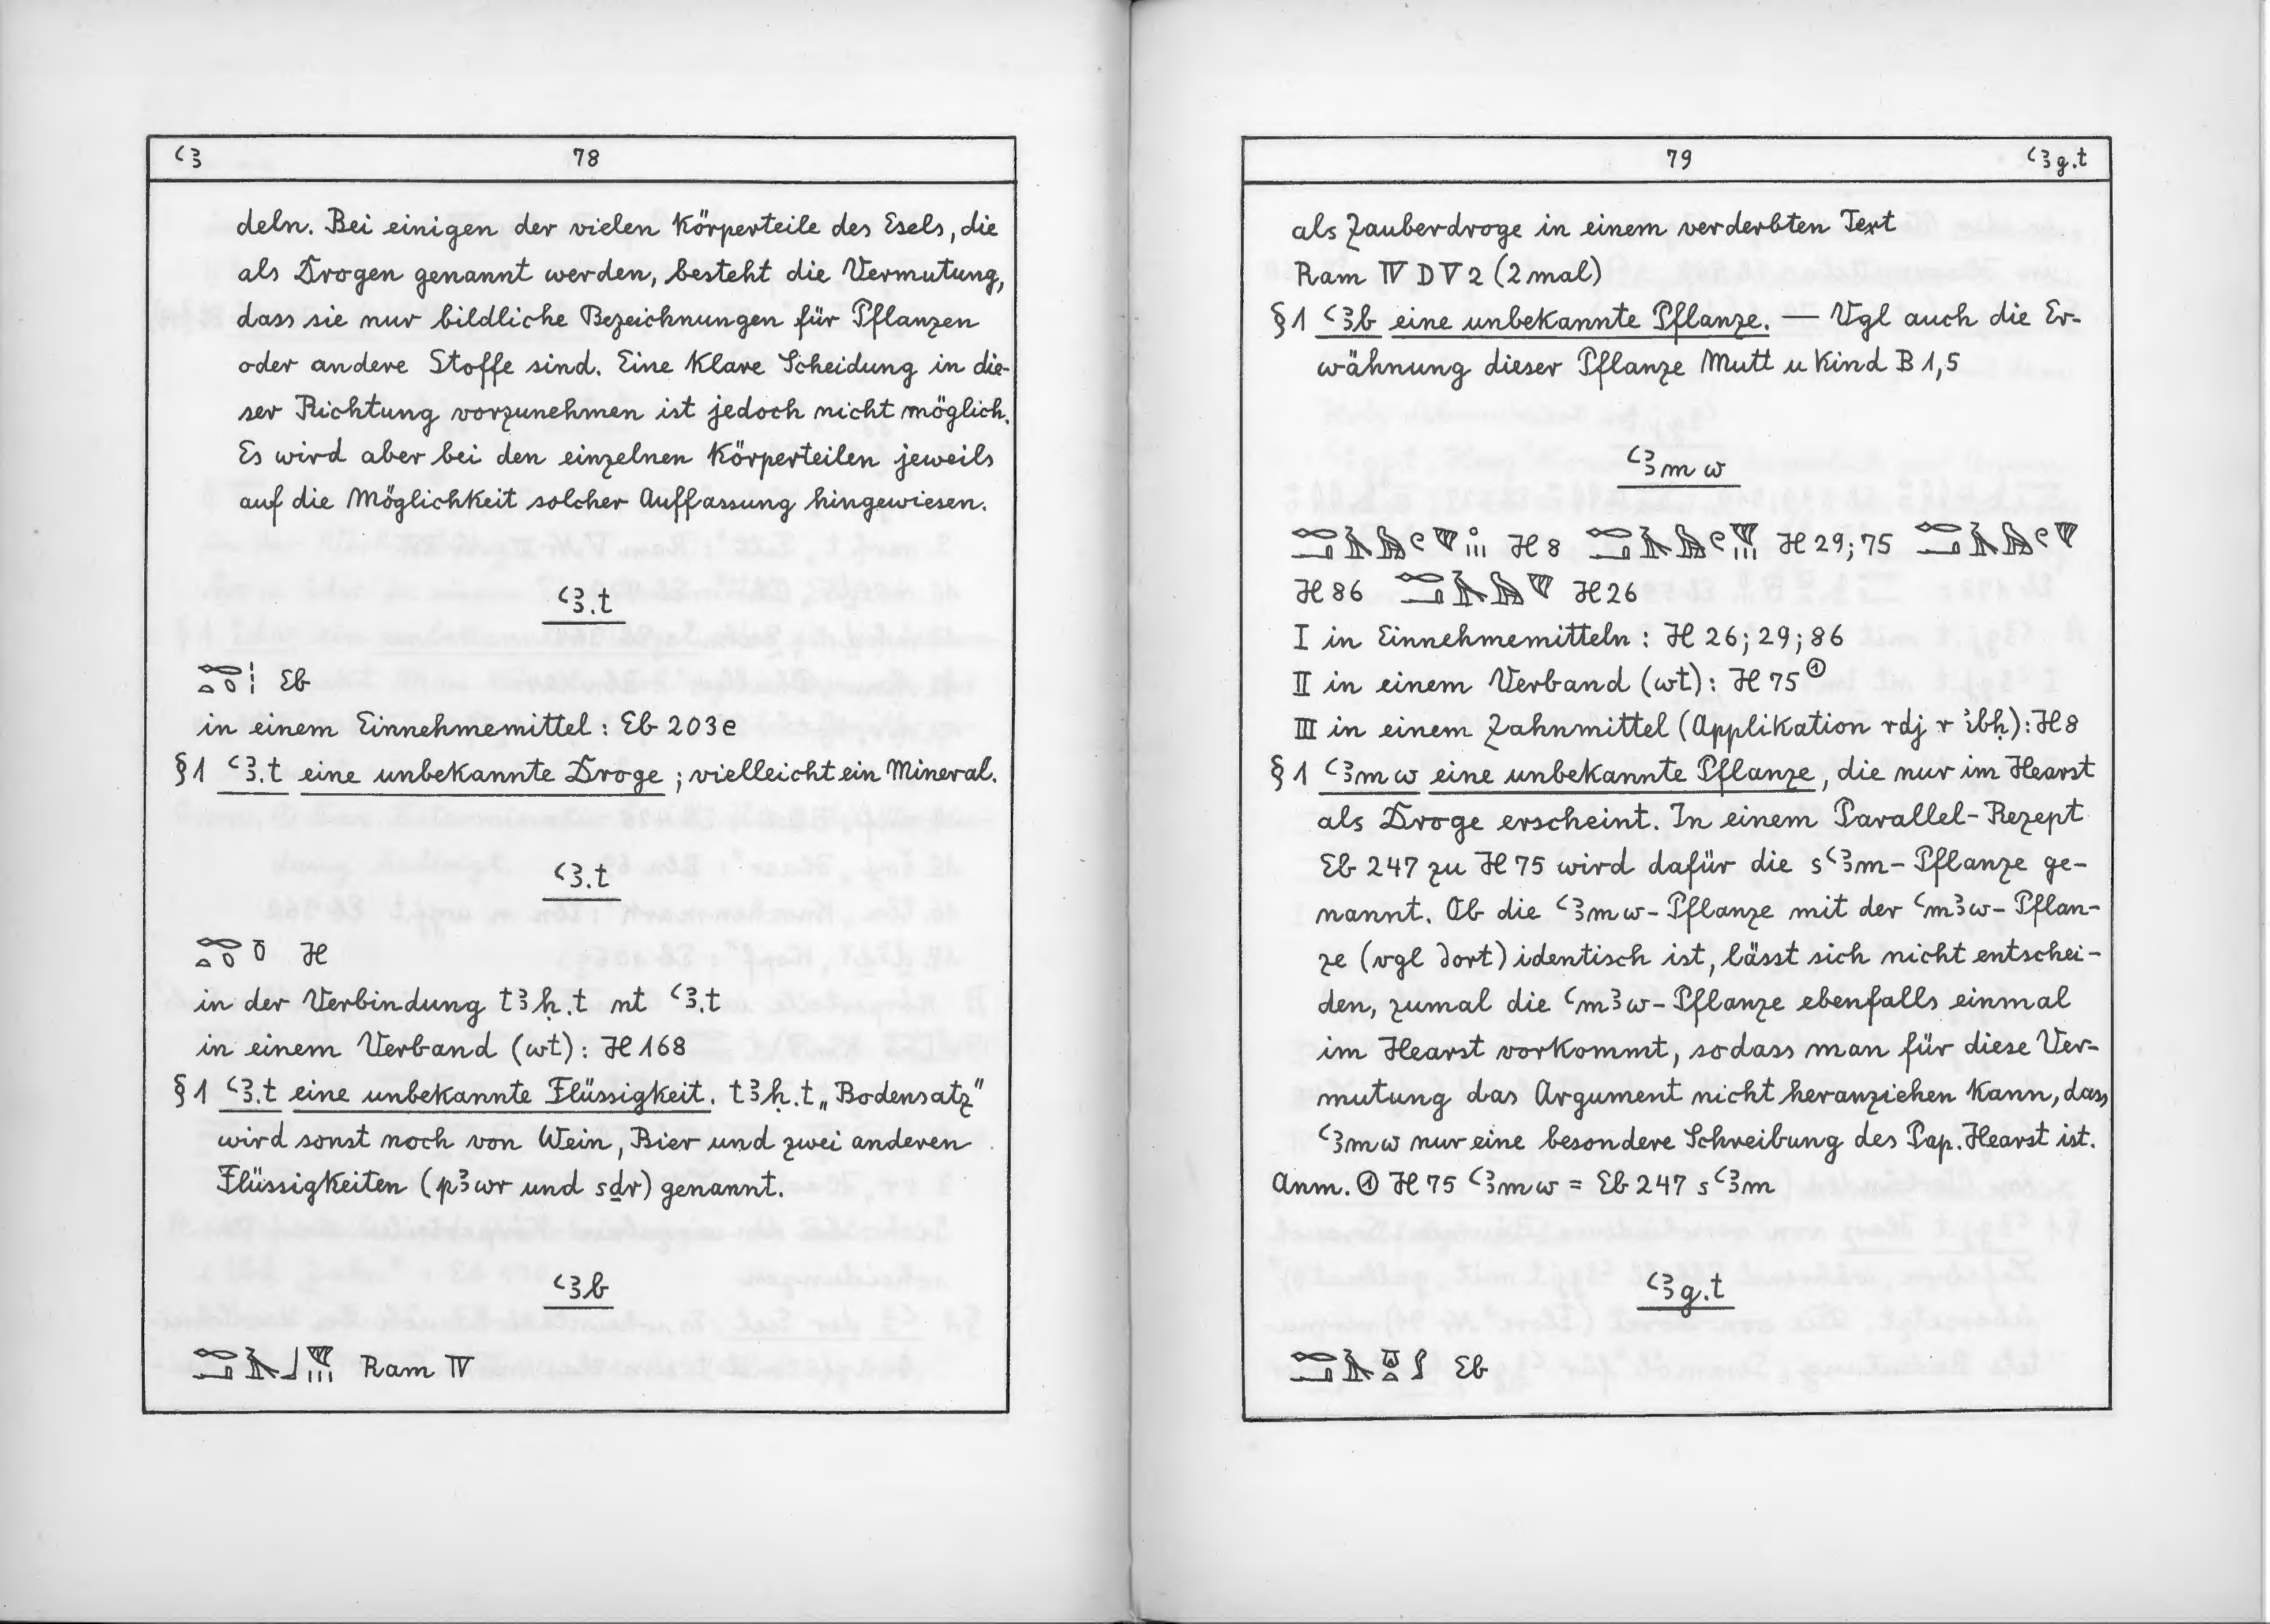 ꜥꜣ 78
deln. Bei einigen der vielen Körperteile des Esels, die
als Drogen genannt werden, besteht die Vermutung,
dass sie nur bildliche Bezeichnungen für Pflanzen
oder andere Stoffe sind. Eine klare Scheidung in die-
ser Richtung vorzunehmen ist jedoch nicht möglich.
Es wird aber bei den einzelnen Körperteilen jeweils
auf die Möglichkeit solcher Auffassung hingewiesen.
ꜥꜣ.t
Eb
in einem Einnehmemittel: Eb 203c
§1 ꜥꜣ.t eine unbekannte Droge; vielleicht ein Mineral.
ꜥꜣ.t
H
in der Verbindung tꜣḥ.t nt ꜥꜣ.t
in einem Verband (wt): H 168
§1 ꜥꜣ.t eine unbekannte Flüssigkeit. tꜣḥ.t „Bodensatz"
wird sonst noch von Wein, Bier und zwei anderen
Flüssigkeiten (pꜣwr und sḏr) genannt.
ꜥꜣb
Ram IV
79 ꜥꜣg.t
als Zauberdroge in einem verderbten Text
Ram IV D V 2 (2mal)
§1 ꜥꜣb eine unbekannte Pflanze. — Vgl auch die Er-
wähnung dieser Pflanze Mutt u Kind B 1,5
ꜥꜣmw
H 8 H 29; 75
H 86 H 26
I in Einnehmemitteln: H 26; 29; 86
II in einem Verband (wt): H 75 ①
III in einem Zahnmittel (Applikation rdj r ꞽbḥ): H 8
§1 ꜥꜣmw eine unbekannte Pflanze, die nur im Hearst
als Droge erscheint. In einem Parallel-Rezept
Eb 247 zu H 75 wird dafür die sꜥꜣm-Pflanze ge-
nannt. Ob die ꜥꜣmw-Pflanze mit der ꜥmꜣw-Pflan-
ze (vgl dort) identisch ist, lässt sich nicht entschei-
den, zumal die ꜥmꜣw-Pflanze ebenfalls einmal
im Hearst vorkommt, sodass man für diese Ver-
mutung das Argument nicht heranziehen kann, dass
ꜥꜣmw nur eine besondere Schreibung des Pap. Hearst ist.
Anm. ① H 75 ꜥꜣmw = Eb 247 sꜥꜣm
ꜥꜣg.t
Eb